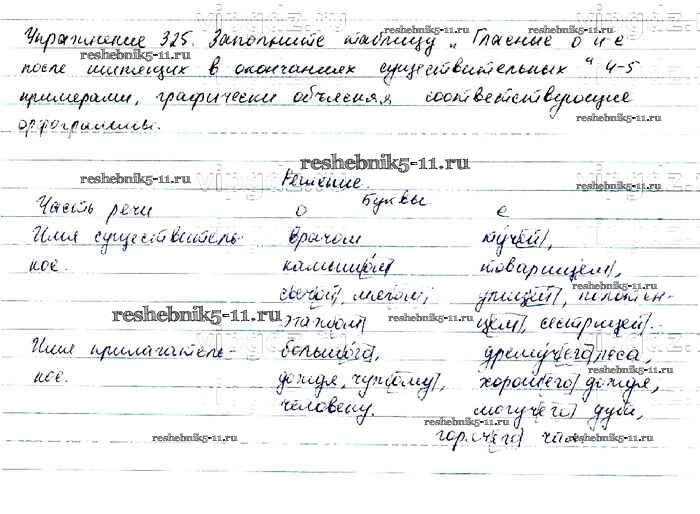 Упражнение 325. Заполните таблицу „Гласные о и е
после шипящих в окончаниях существительных“ 4-5
примерами, графически объясняя соответствующие
орфограммы.
reshebnik5-11.ru
reshebnik5-11.ru
reshebnik5-11.ru
reshebnik5-11.ru
reshebnik5-11.ru
Решение.
Буквы
Часть речи о е
Имя существитель- врачом тучей,
ное. камышом товарищем,
свечой, мячом, полотен-
reshebnik5-11.ru
этажом цем, сестрицей.
reshebnik5-11.ru
Имя прилагатель- большого, дремучего леса,
ное. дождя, чужому, хорошего дождя,
reshebnik5-11.ru
человеку. могучего
reshebnik5-11.ru
reshebnik5-11.ru